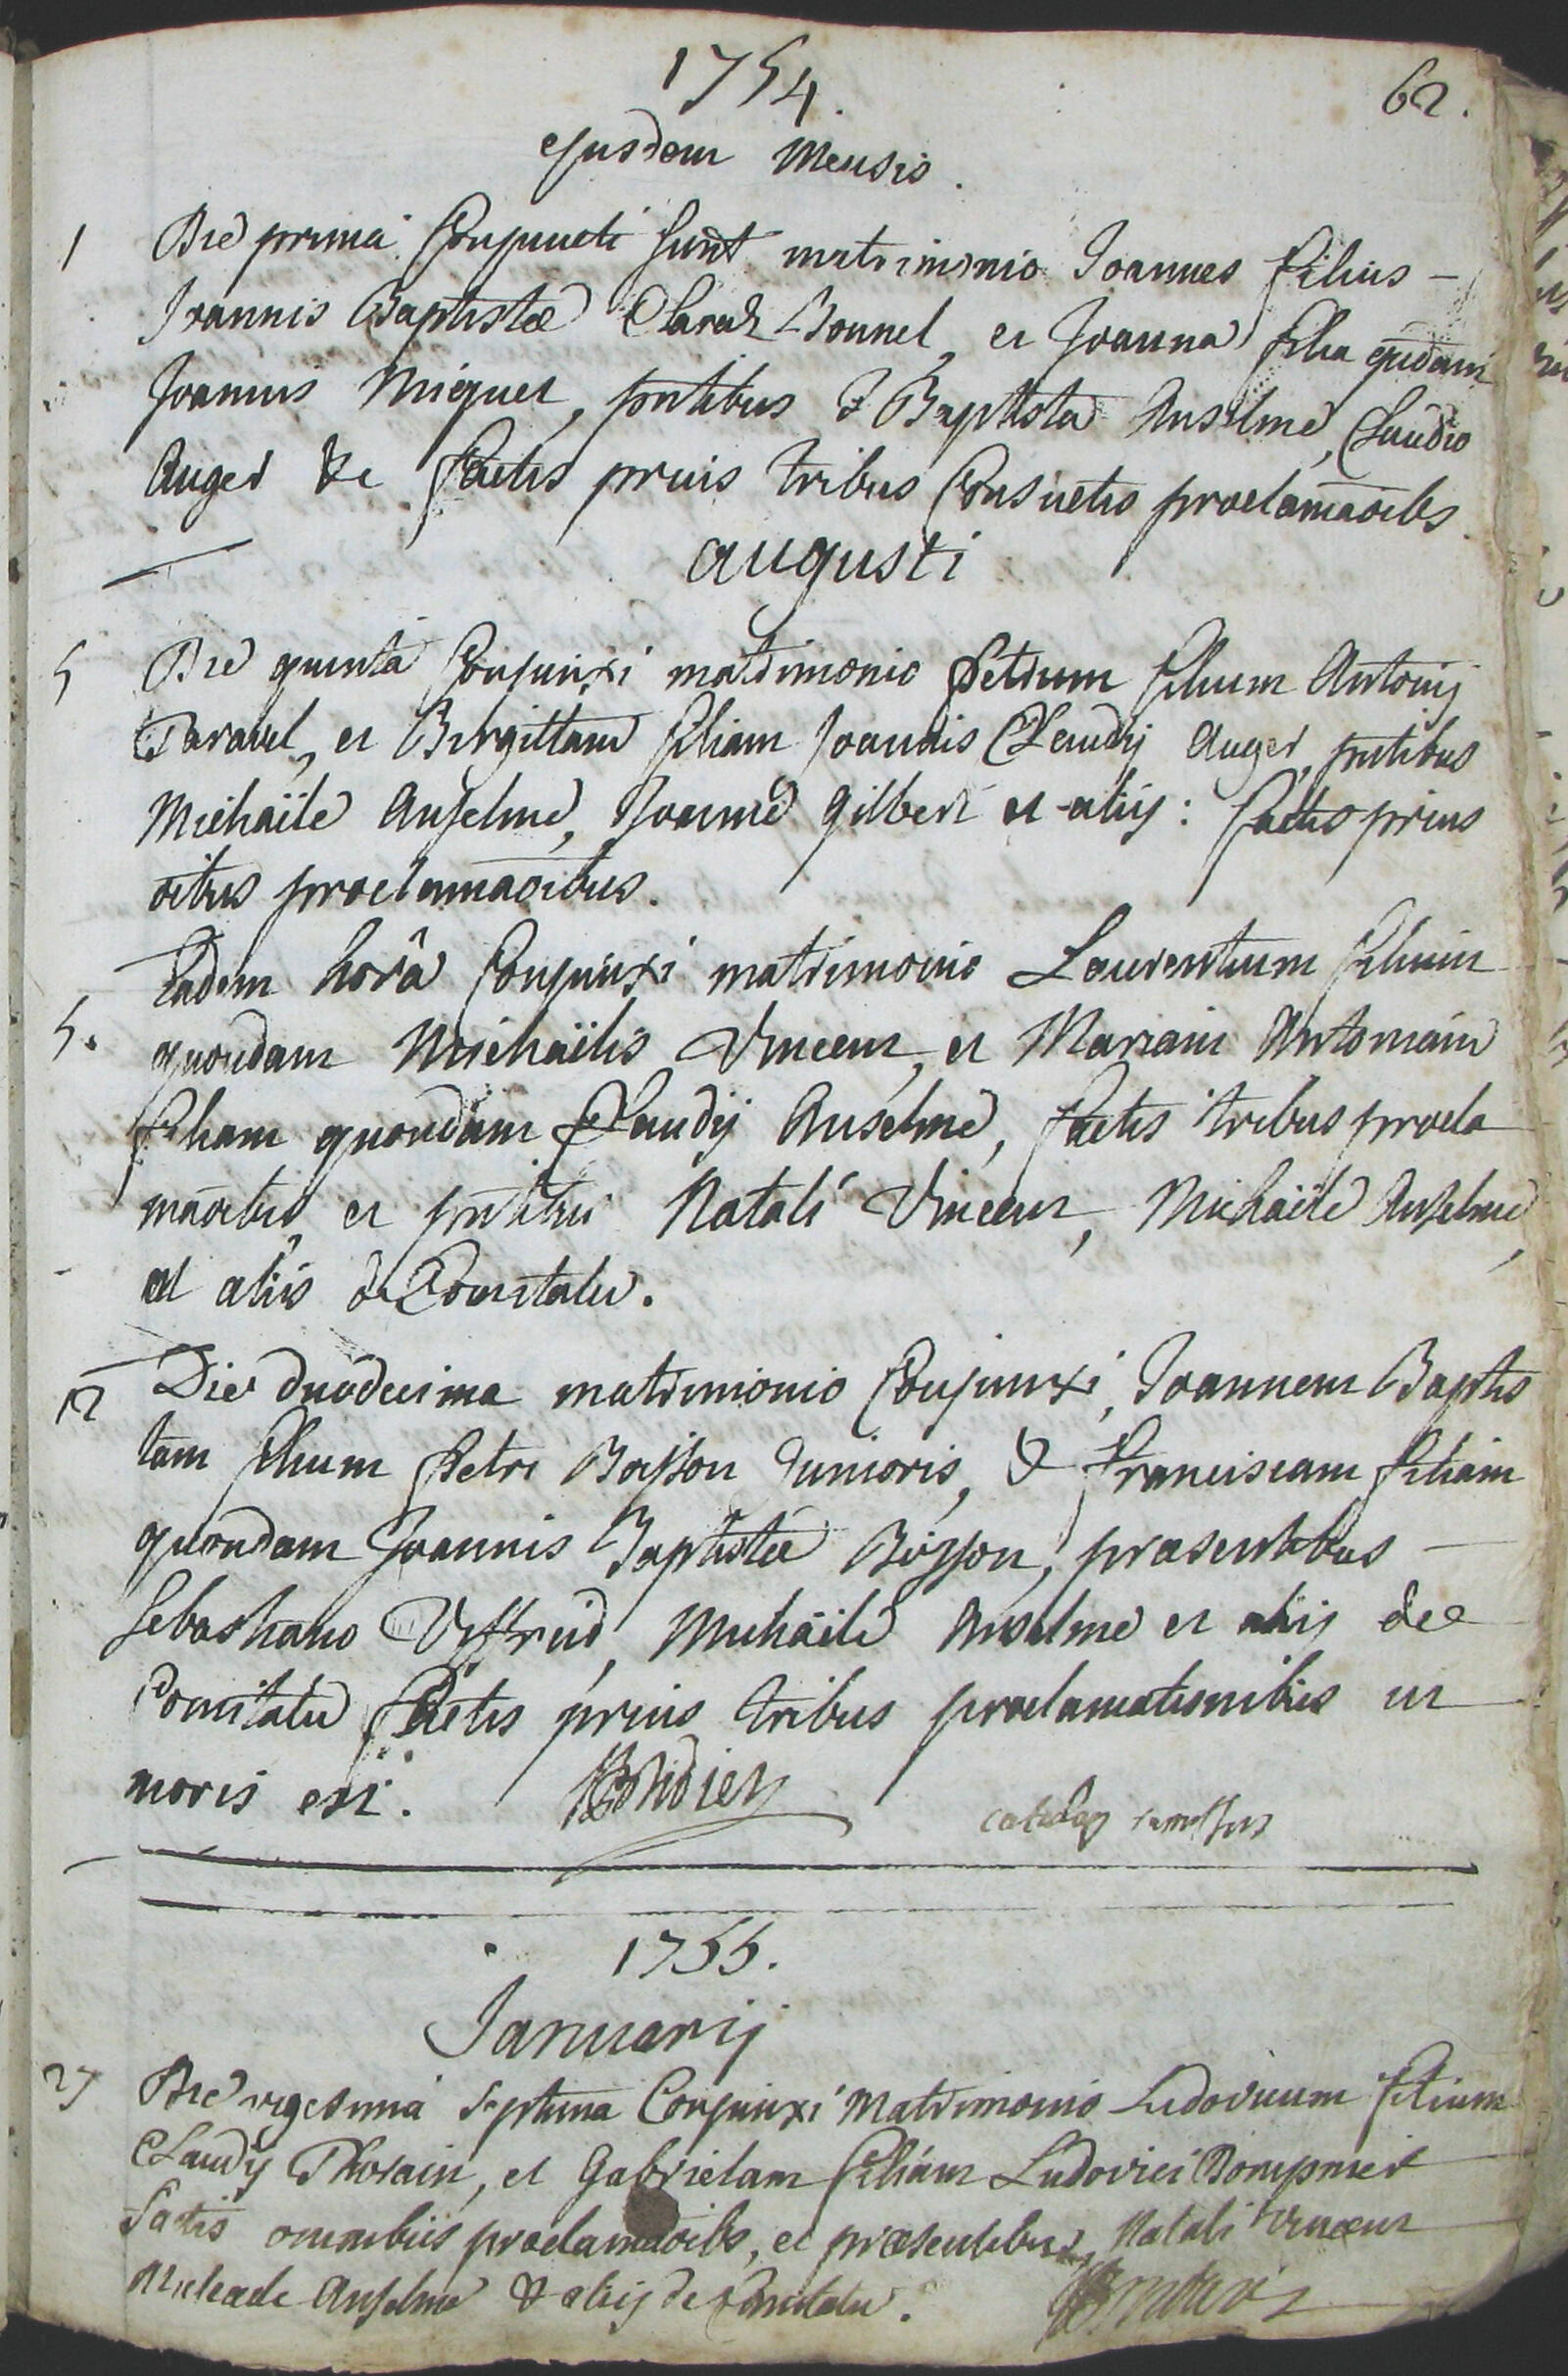 1754.
62.
ejusdem Mensis.
1 Die primâ Conjuncti Sunt matrimonio Joannes filius -
Joannis Baptistæ Claraz Bonnel, et Joanna filia qūdam
Joannis Miquet, pntibus J Baptista Anselme, Claudio
Auger &c factis prius tribus Consuetis proclamaōibs.
augusti
5 Die quintâ Conjunxi matrimonio Petrum filium Antonij
Taravel, et Birgittam filiam Joannis Claudij Auger, pntibus
Michaële Anselme, Joanne Gilbert et aliis: factis prius
proclamaōibus.
Eadem horâ Conjunxi matrimonio Laurentium filium
5. quondam Michaëlis Vincent, et Mariam Antoniam
filiam quondam Claudij Anselme, factis tribus procla
māoibus, et pntibus Natali Vincent, Michaële Anselme,
et aliis de Comitatu.
12 Die duodecima matrimonio Conjunxi, Joannem Baptis
tam filium Petri Boisson Junioris, & Franciscam filiam
quondam Joannis Baptistæ Boisson, præsentibus -
Sebastiano Michaële Anselme et aliis de
Comitatu factis prius tribus proclamationibus ut
moris est.
1755.
Januarij
27 Die vigesima Septima Conjunxi Matrimonio Ludovicum filium
Claudij Thorain, et Gabrielam filiam Ludovici Dompnier
factis omnibus proclamaōibs, et præsentibus, Natali Vincent
Michaele Anselme & aliis de Comitatu.